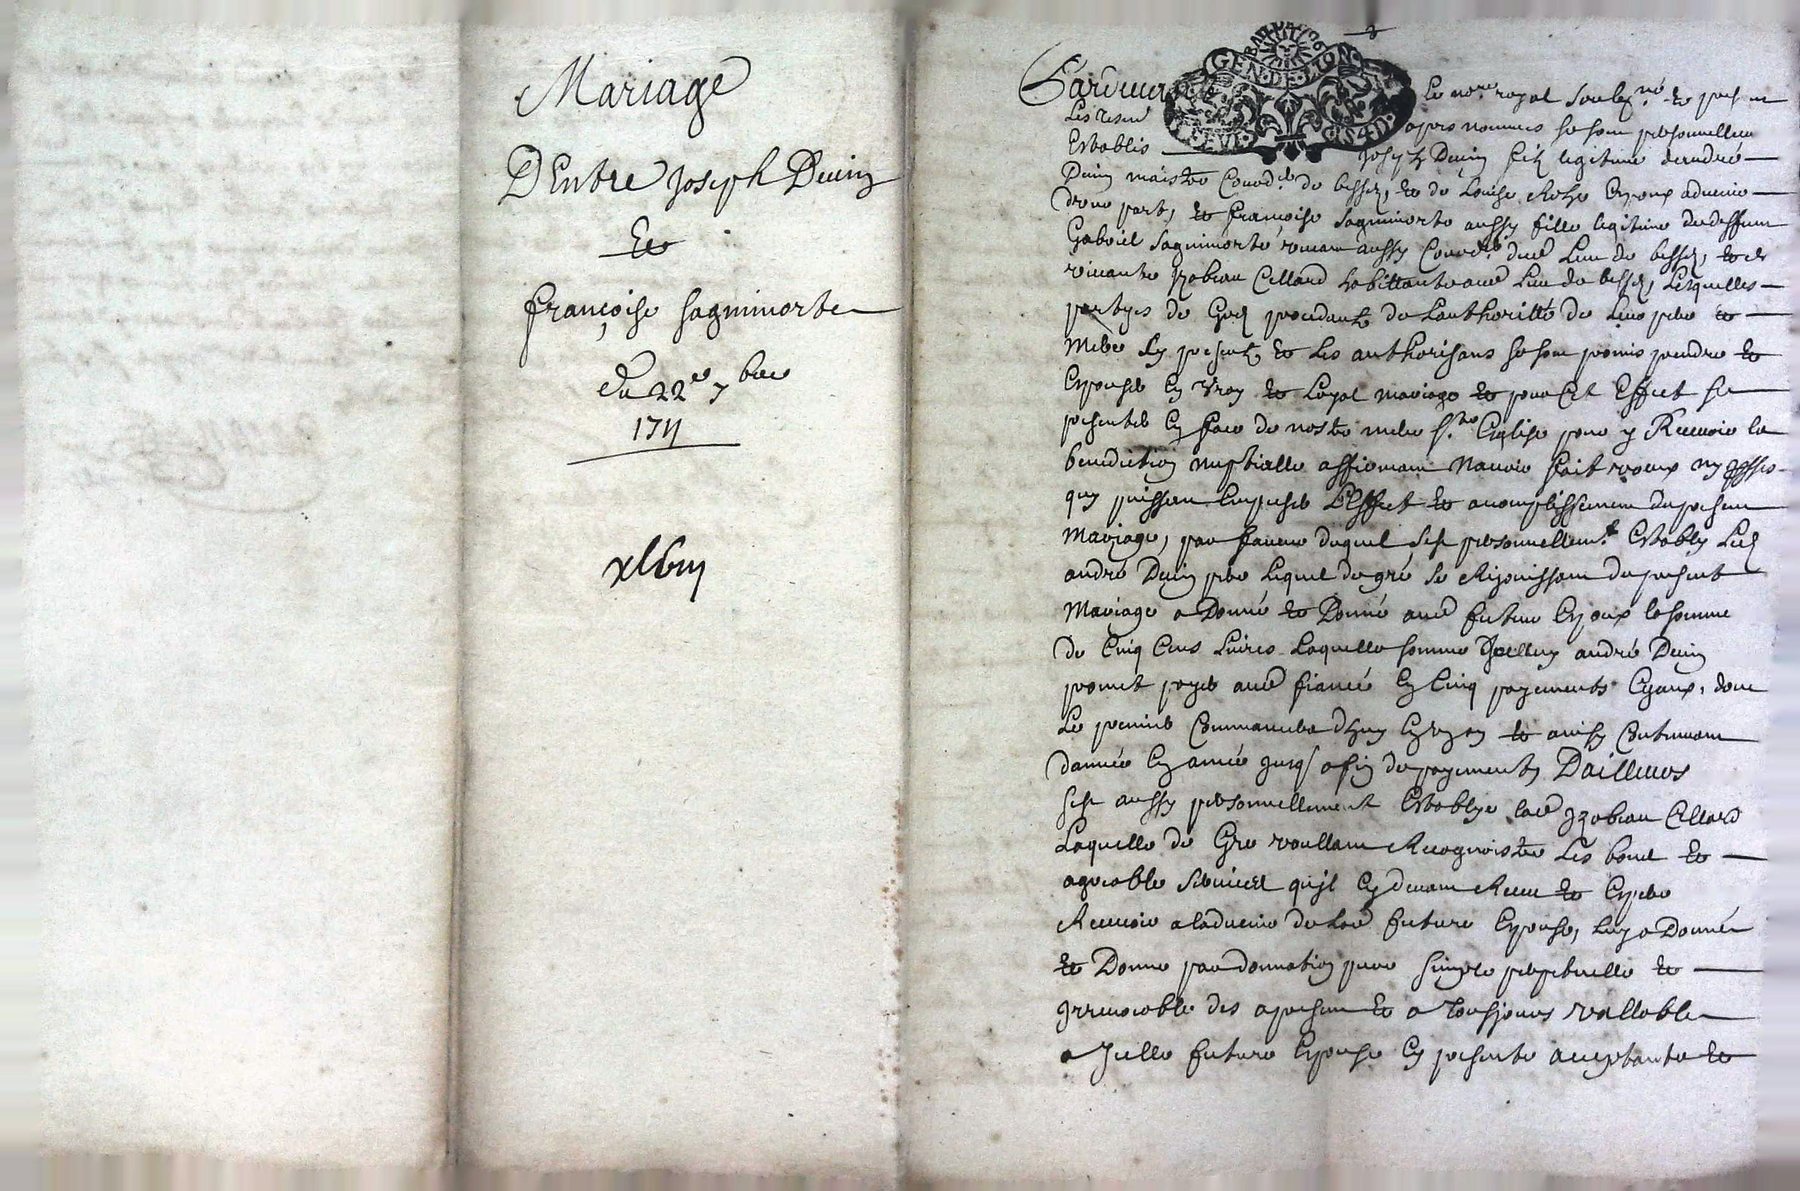 Mariage
D'Entre Joseph Duin
Et
françoise sagnimorte
du 22e 7bre
1711
Pardevant
Le nore royal soubzné et presant
GEN·DE·LION
Les tesm
apres nommes se sont personnellem
Establis
Joseph Duin filz legitime dandré
Duin maistre Cord.er de besse, et de Louise Epoux advenir
d'une part, et françoise sagnimorte aussy fille legitime de deffunt
Gabriel sagnimorte vivant aussy dud Lieu de besse, et de
vivante Izabeau Cellard habittante aud Lieu de besse, Lesquelles
partyes de Gré procedants de Lauthoritté de Leur pere et
Mere Icy presents et Les authorisans se sont promis prendre et
Epouser En vray et Loyal mariage et pour Cet Effect se
presenter En face de nostre mere Ste Eglise pour y Recevoir la
benediction nuptialle affirmant Navoir fait voeux ny
quy puissent Empescher L'Effect et accomplissement du present
Mariage, par faveur duquel sest personnellemt Estably Led
andré Duin pere Lequel de gré se Rejouissant du present
Mariage a Donné et Donne aud futur Epoux la somme
de Cinq Cens Livres Laquelle somme Icelluy andré Duin
promet payer aud fiancé En Cinq payements Egaux, dont
Le premier Commancera dhuy En un an et ainsy Continuant
dannée En année jusq a fin de payements, Dailleurs
sest aussy personnellement Establye lad Izabeau Cellard
Laquelle de Gré voullant Recognoistre Les bons et
agreable services qu'il Cy devant Receu et Espere
Recevoir a ladvenir de Lad future Epouse, Luy a Donné
et Donne par donnation pure simple perpetuelle et
Irrevocable des a present et a Tousjours vallable
a Icelle future Epouse Cy presente acceptante et